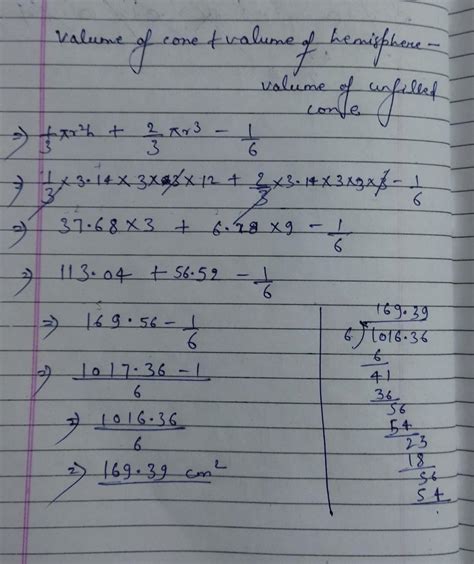 volume of cone + volume of hemisphere -
volume of unfilled
cone
=> 1/3 πr²h + 2/3 πr³ - 1/6
=> 1/3 × 3.14 × 3 × 3 × 12 + 2/3 × 3.14 × 3 × 3 × 3 - 1/6
=> 37.68 × 3 + 6.28 × 9 - 1/6
=> 113.04 + 56.52 - 1/6
=> 169.56 - 1/6
=> 1017.36 - 1 / 6
=> 1016.36 / 6
=> 169.39 cm²
169.39
6) 1016.36
6
41
36
56
54
23
18
56
54